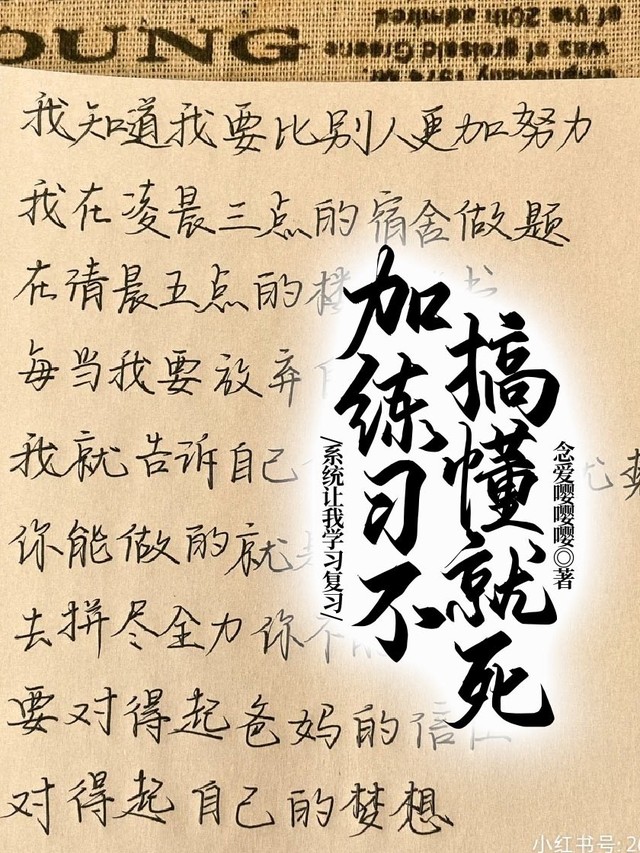 OUNG
of the 20th admired
was of greisald Greene
我知道我要比别人更加努力
我在凌晨三点的宿舍做题
在清晨五点的楼
每当我要放弃
我就告诉自己
你能做的就是
去拼尽全力你不
要对得起爸妈的信任
对得起自己的梦想
加练习不
搞懂就死
/系统让我学习复习/
念爱嘤嘤嘤◎著
小红书号:2